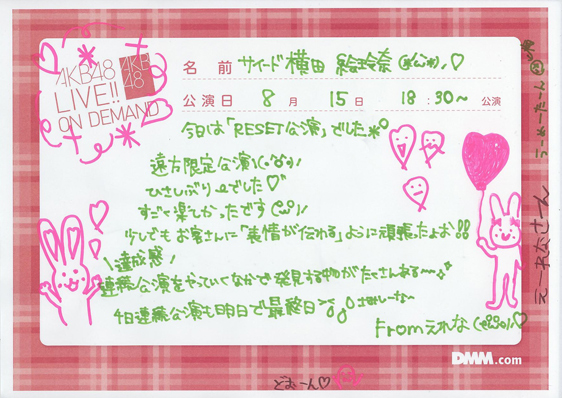 AKB48
LIVE!!
ON DEMAND
AKB
48
名 前 サイード横田 絵玲奈
公演日 8 月 15 日 18:30~ 公演
今日は「RESET公演」でした
遠方限定公演!
ひさしぶりでした♡
すごく楽しかったです
少しでもお客さんに「表情が伝わる」ように頑張ったよお!!
達成感!
連続公演をやっていくなかで発見する物がたくさんある〜
4日連続公演も明日で最終日
さみしーなー
Fromえれな
DMM.com
どおーん♡
えーれなさーん